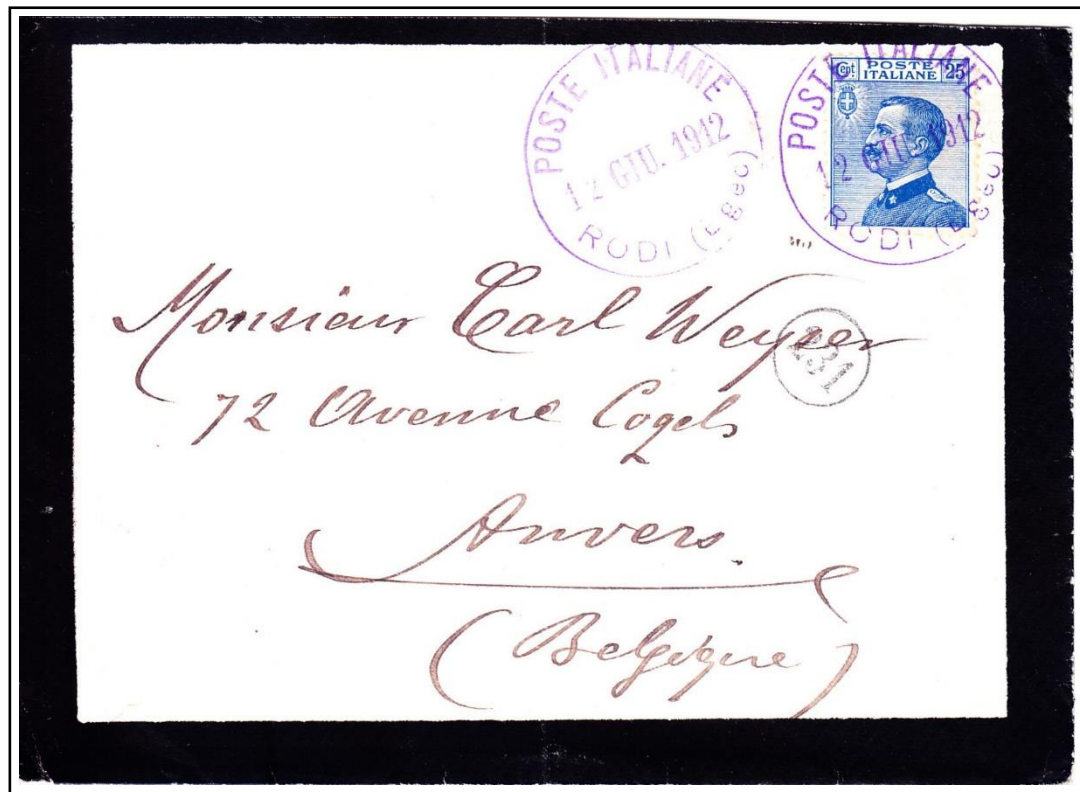 POSTE ITALIANE
12 GIU. 1912
RODI (Egeo)
POSTE ITALIANE
12 GIU. 1912
RODI (Egeo)
Cent. POSTE ITALIANE 25
Monsieur Carl Weyser
231
72 Avenue Cogels
Anvers.
(Belgique)